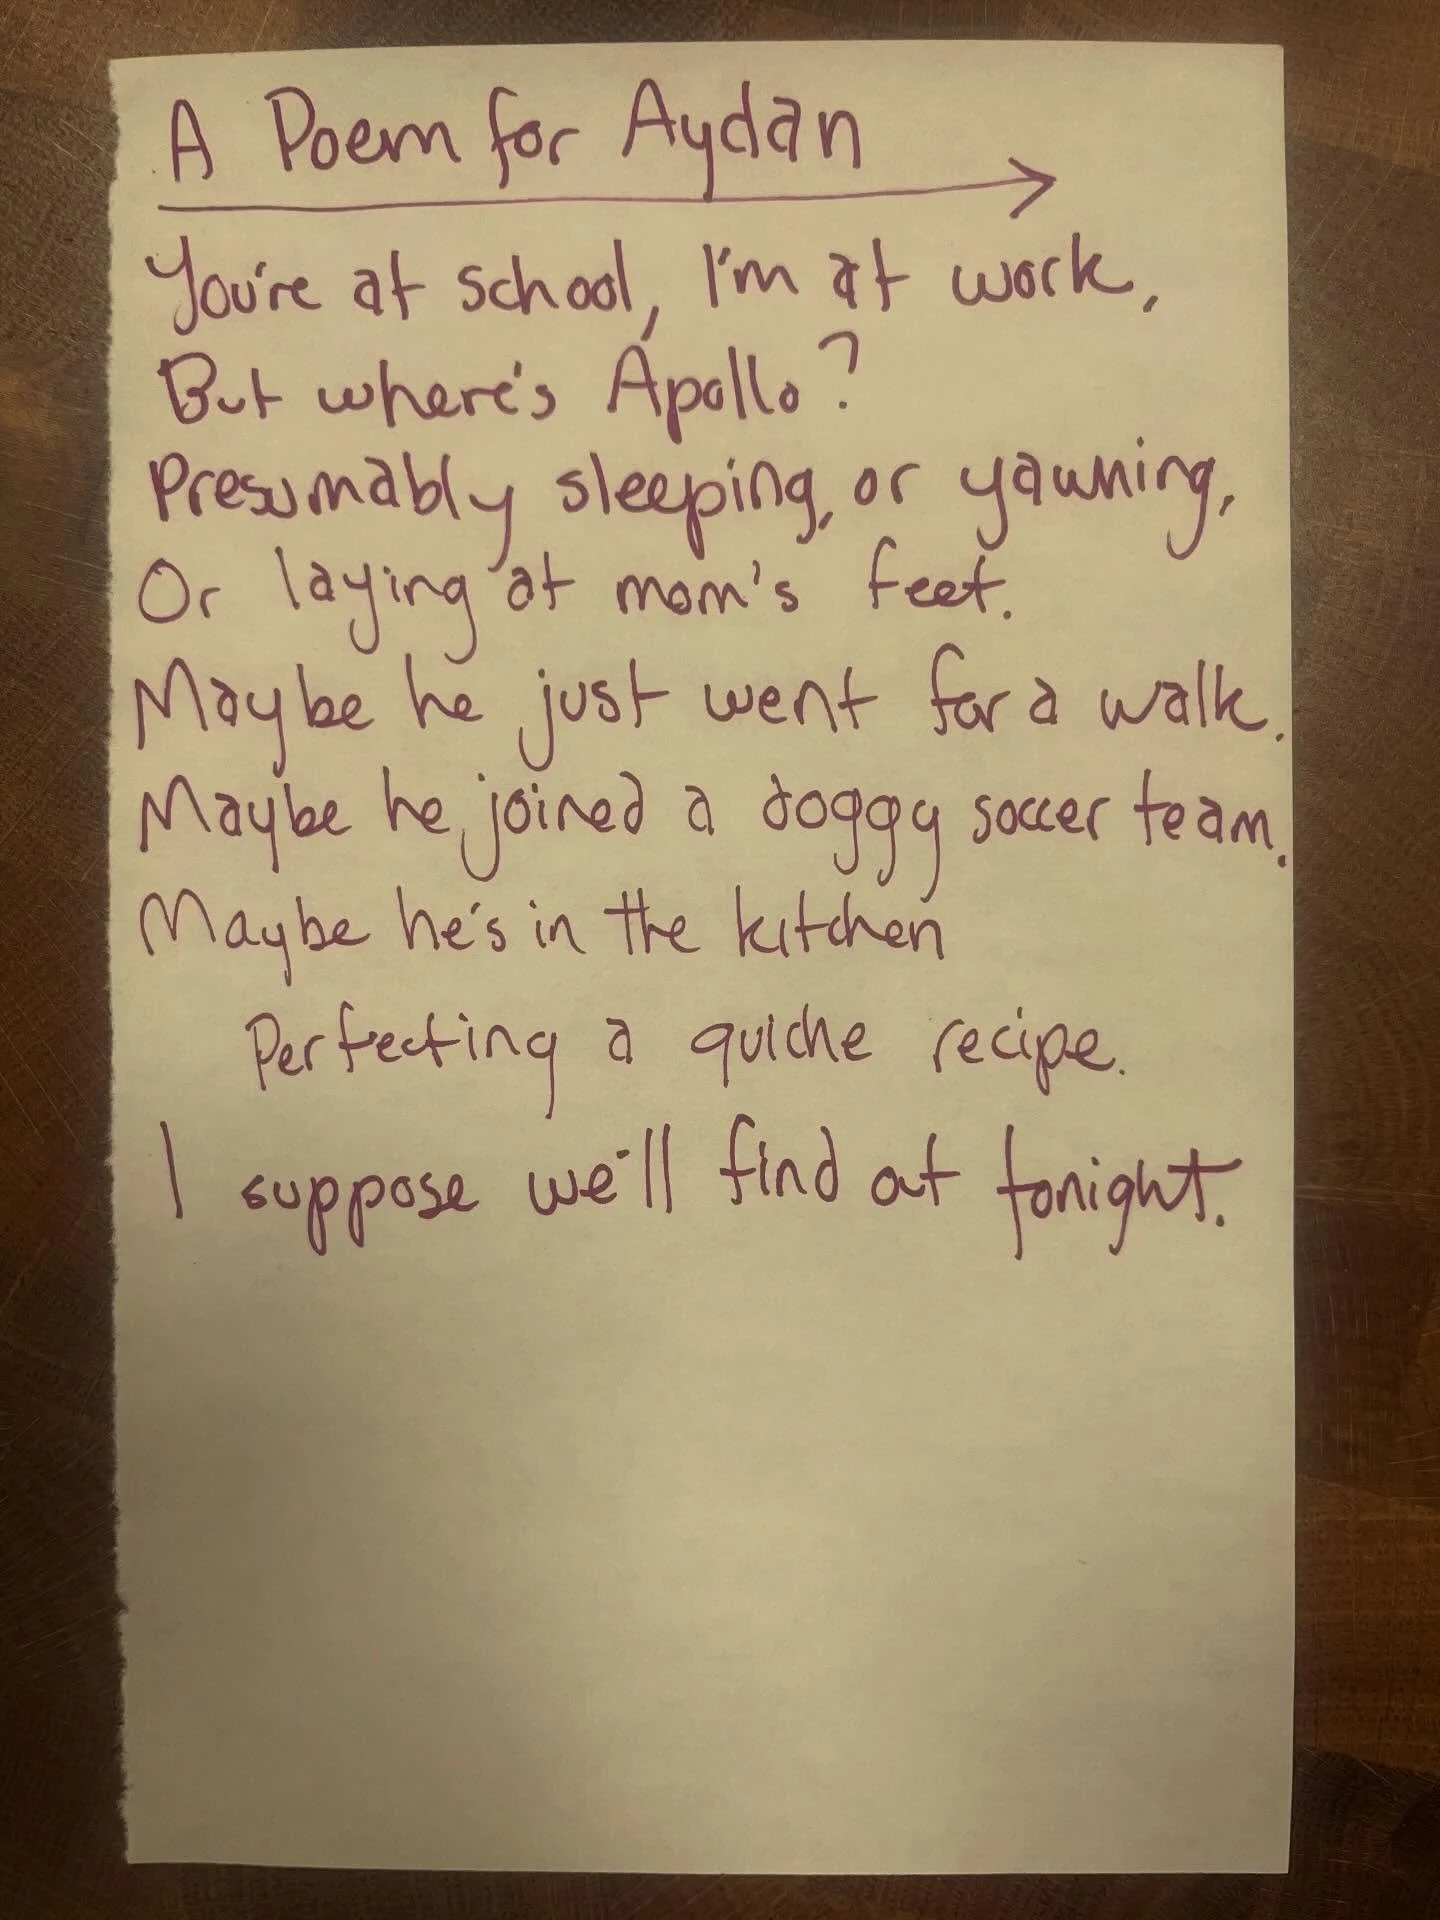 A Poem for Aydan
You're at school, I'm at work,
But where's Apollo?
Presumably sleeping, or yawning,
Or laying at mom's feet.
Maybe he just went for a walk.
Maybe he joined a doggy soccer team.
Maybe he's in the kitchen
Perfecting a quiche recipe.
I suppose we'll find out tonight.